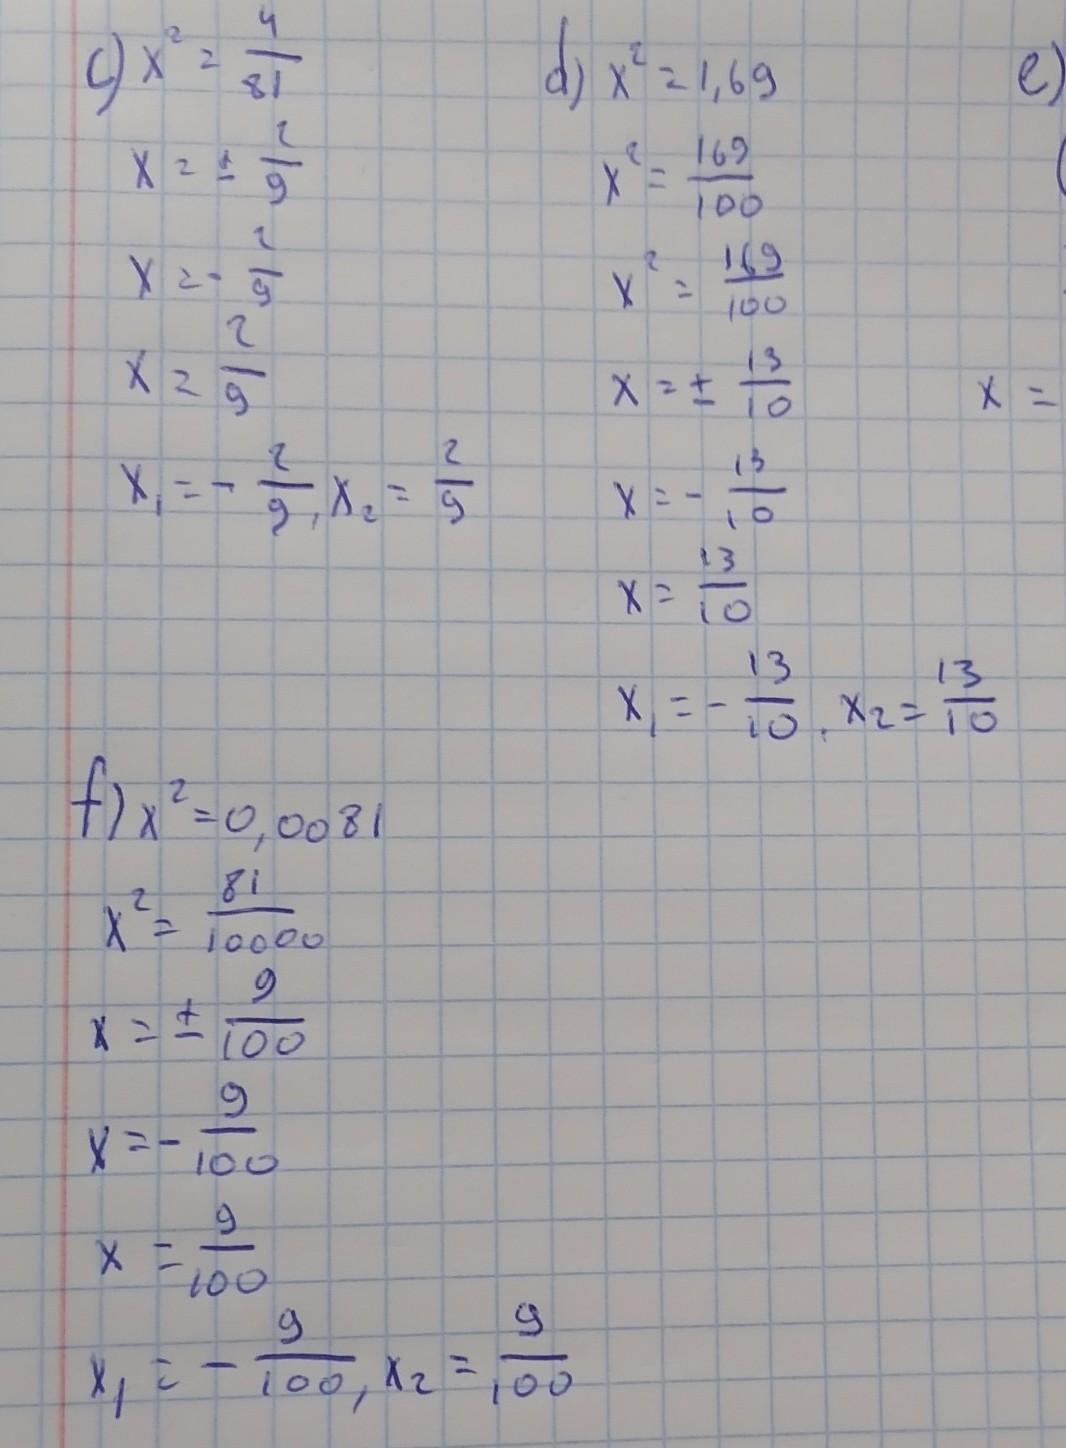 c) x² = 4/81
x = ± 2/9
x = - 2/9
x = 2/9
x₁ = - 2/9, x₂ = 2/9
d) x² = 1,69
x² = 169/100
x² = 169/100
x = ± 13/10
x = - 13/10
x = 13/10
x₁ = - 13/10, x₂ = 13/10
e)
x =
f) x² = 0,0081
x² = 81/10000
x = ± 9/100
x = - 9/100
x = 9/100
x₁ = - 9/100, x₂ = 9/100